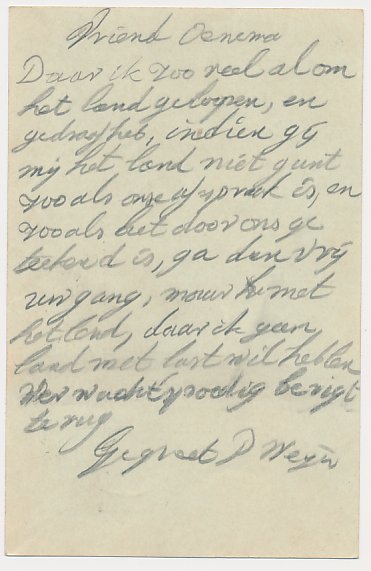 Vriend Oenema
Daar ik zoo veel al om
het land geloopen, en
gedraaf heb, indien gij
mij het land niet gunt
zoo als onse afspraak is, en
zoo als het door ons ge
teekend is, ga dan vrij
uw gang, met
het land, daar ik geen
land met last wil hebben
Verwacht spoedig berigt
terug
Gegroet D